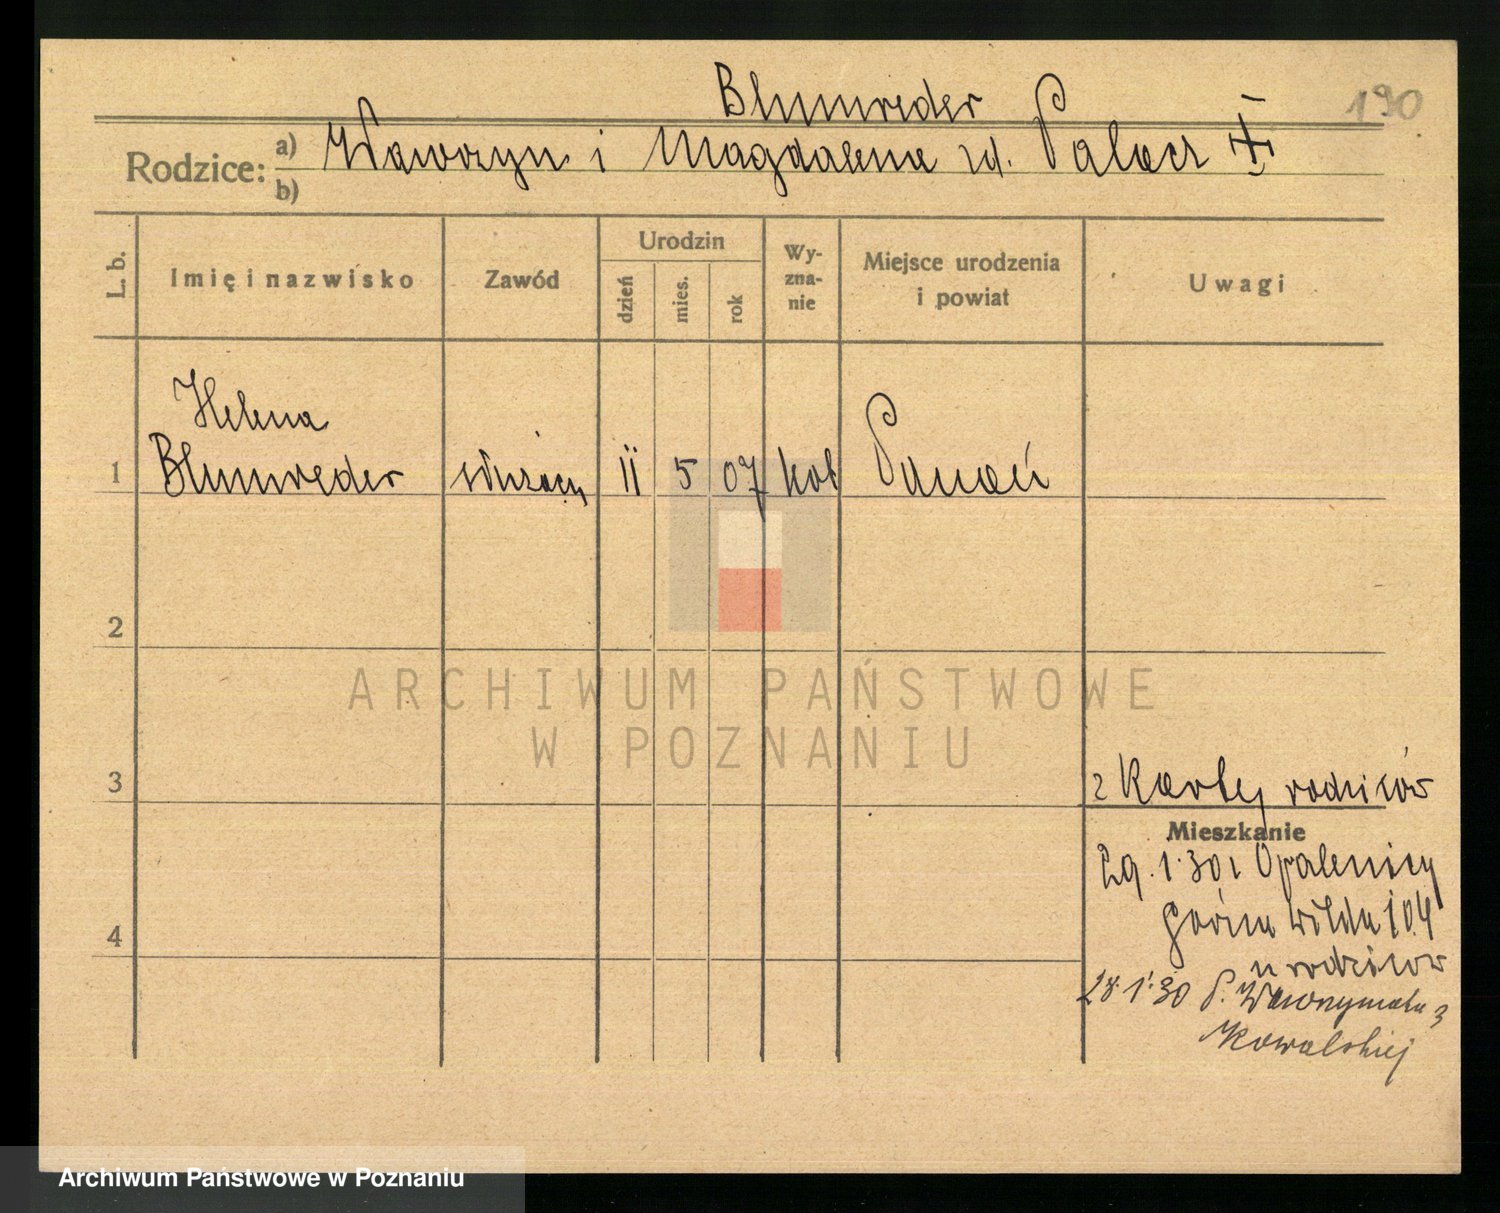 Blumreder
190
Rodzice: a) Wawrzyn i Magdalena rd. Palacz
b)
L. b.
Imię i nazwisko
Zawód
Urodzin
dzień
mies.
rok
Wy-
zna-
nie
Miejsce urodzenia
i powiat
Uwagi
Helena
1 Blumreder służący 11 5 07 kat Poznań
2
ARCHIWUM PAŃSTWOWE
W POZNANIU
3
z Karty rodziców
Mieszkanie
1.30 z Opalenicy
4
Górna Wilda 104
u rodziców
28.1.30 P. Wawrzyniaka 3
Kowalskiej
Archiwum Państwowe w Poznaniu